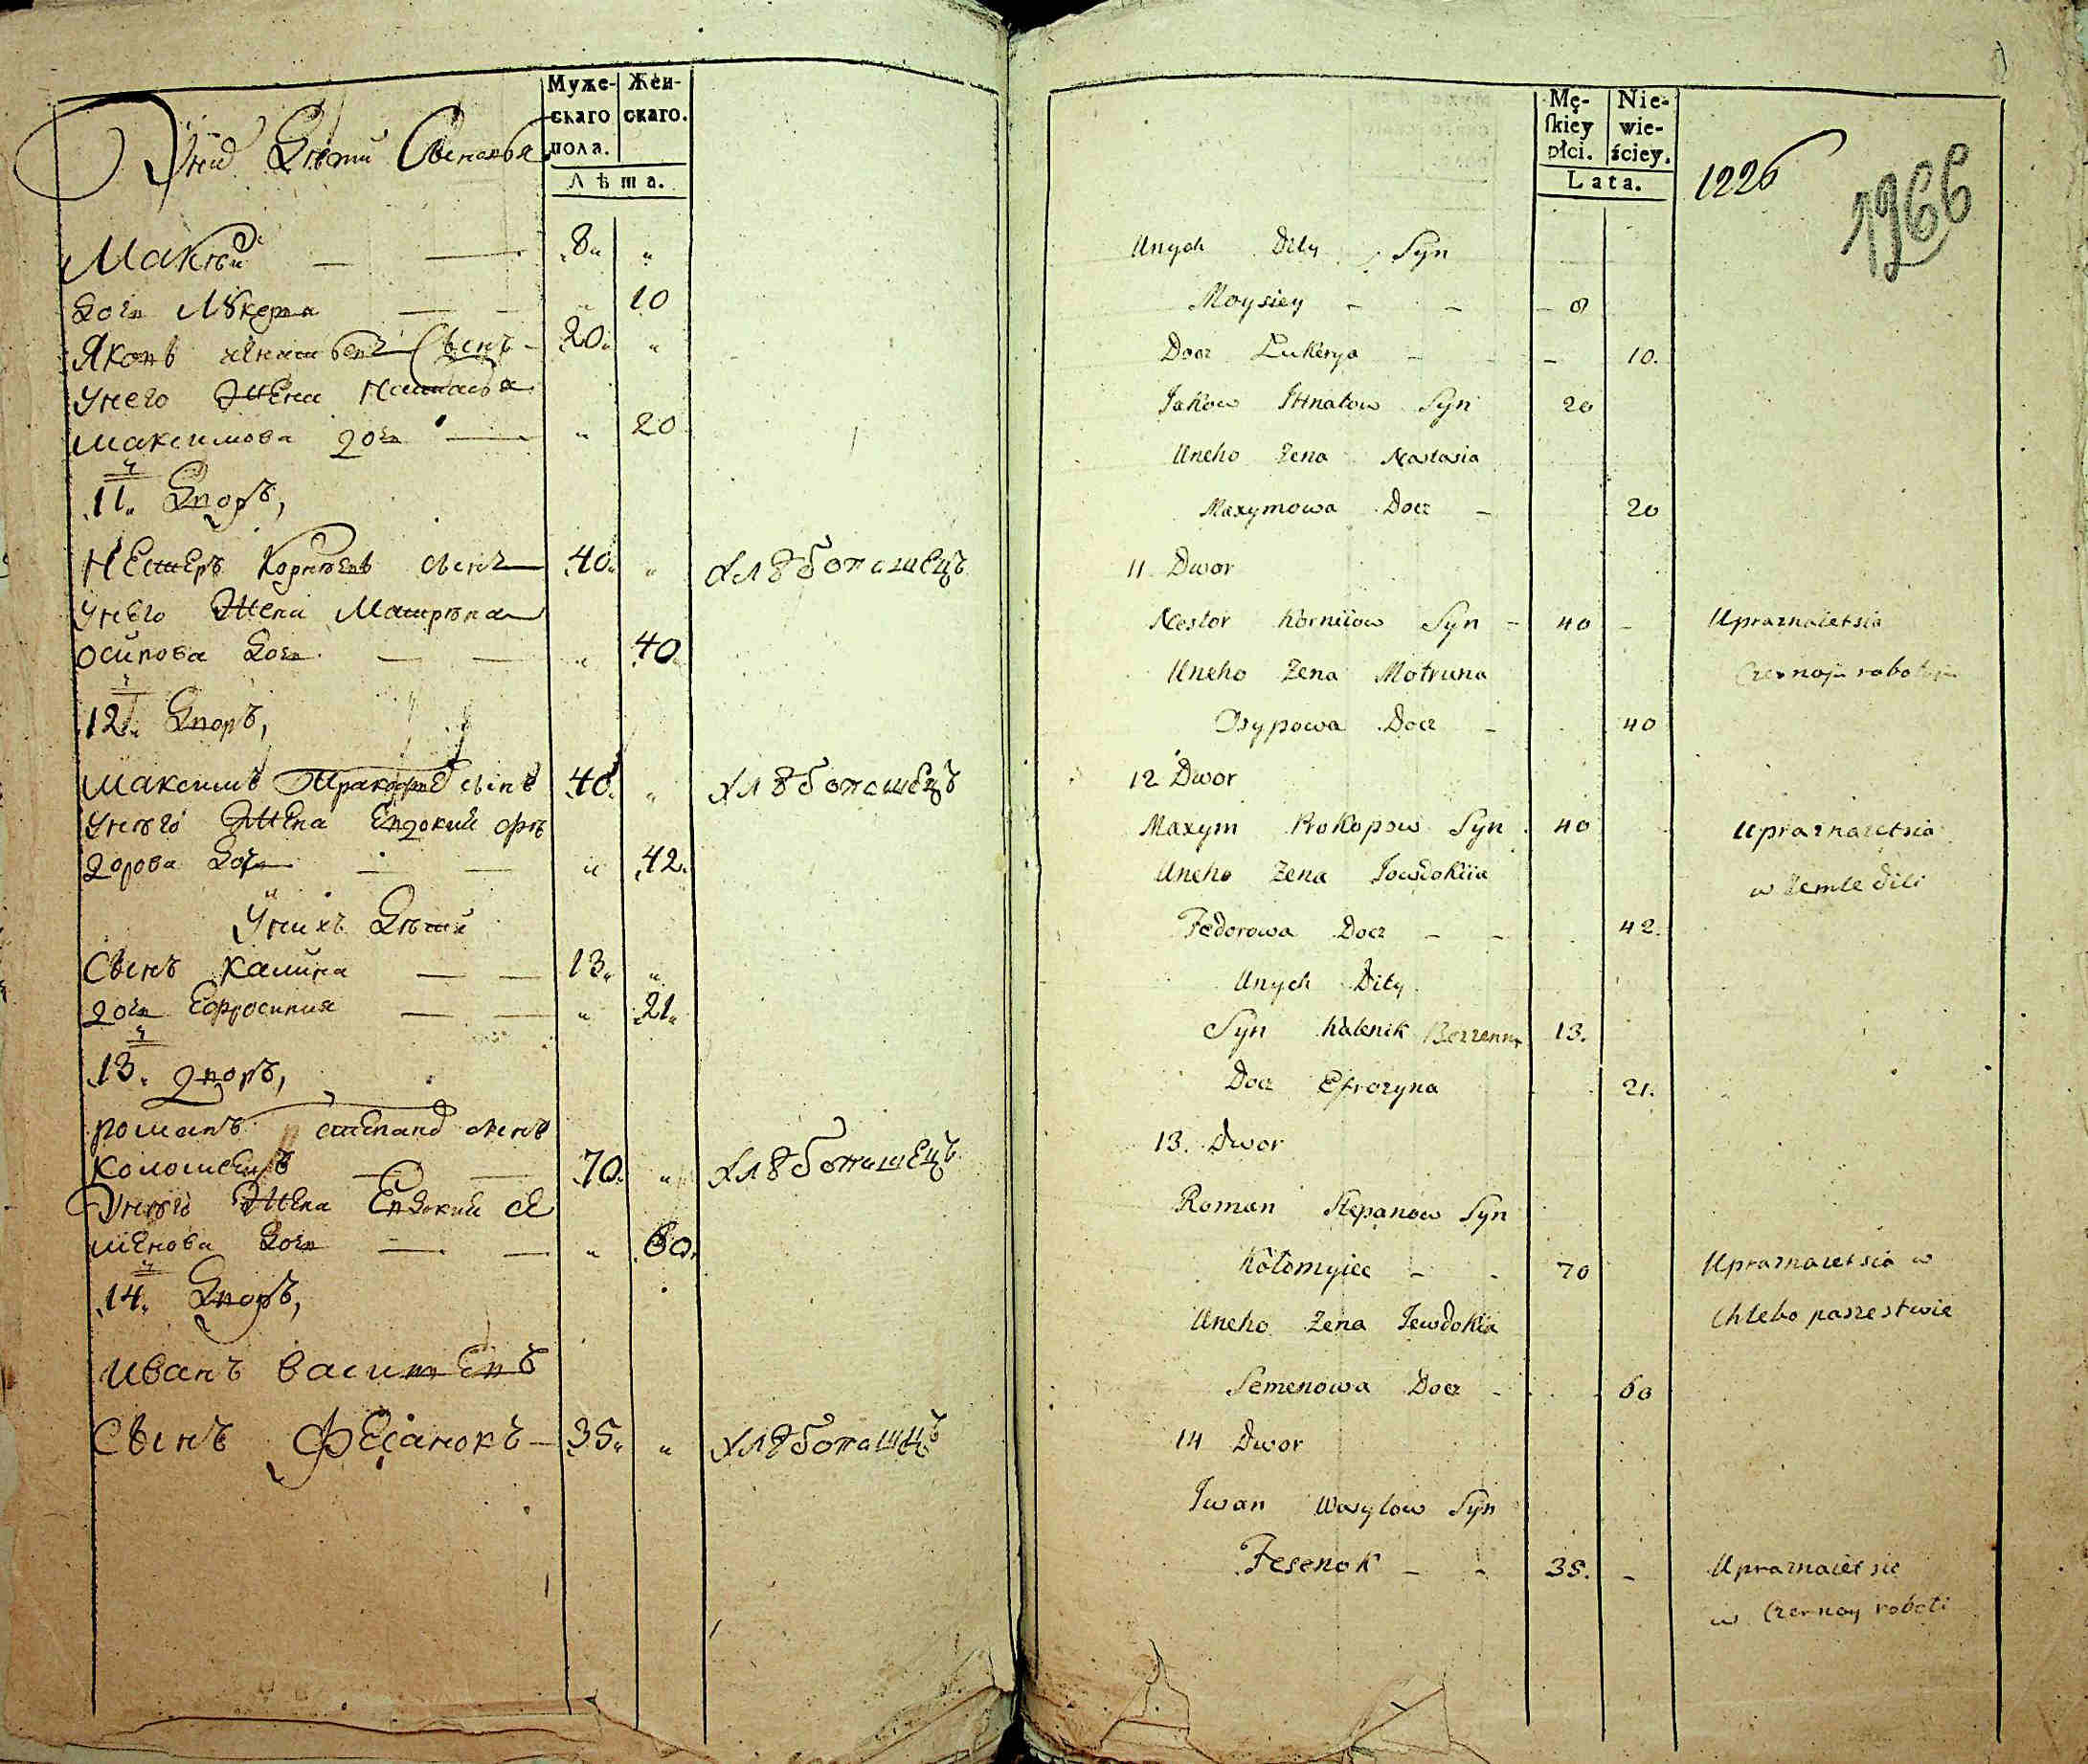 Муже-
скаго
пола.
Жен-
скаго.
Лѣта.
Унихъ Дѣти Сыновья
Мақѣй — — 8 „
дочь Лукеря — — „ 10
Яковъ игнатовъ сынъ — 20 „
Унего Жена Настасья
максимова дочь — „ 20
11. Дворъ,
НЕстеръ Корнѣевъ сынъ — 40 „ хлѣбопашецъ
Унего Жена Матрѣна
осипова дочь — — „ 40
12. Дворъ,
максимъ Пракофиевъ сынъ 40 „ хлѣбопашецъ
Унего Жена Евдокия фѣ
дорова дочь — — „ 42
Унихъ Дѣти
Сынъ калина — — 13 „
дочь Ефросиния — — „ 21
13. дворъ,
романъ степановъ сынъ
коломеецъ — — 70 „ хлѣбопашецъ
Унего Жена Евдокия се
менова дочь — — „ 60
14. Дворъ,
иванъ васильевъ
Сынъ фесѧнокъ — 35 „ хлѣбопашецъ
Mę-
skiey
płci.
Nie-
wie-
ściey.
Lata.
1226
1266
Unych Dity Syn
Moysiey - - - 8
Docz Lukerya - - - 10.
Jakow Ihnatow Syn 20
Uneho Zena Nastasia
Maxymowa Docz - 20
11 Dwor
Nestor Korniiow Syn - 40 - Upraznaietsia
Uneho Zena Motruna Czernoju robotoju
Osypowa Docz - 40
12 Dwor
Maxym Prokopow Syn 40 Upraznaietsia
Uneho Zena Jowdokiia w Zemle dili
Fedorowa Docz - - 42.
Unych Dity
Syn Kalenik 13.
Docz Efrozyna 21.
13. Dwor
Roman Stepanow Syn
Kołomyiec - - 70 Upraznaietsia w
Uneho Zena Jewdokia Chlebo paszestwie
Semenowa Docz - 60
14 Dwor
Iwan Wasylow Syn
Fesenok - - 35. - Upraznaiet sie
w Czernoy roboti